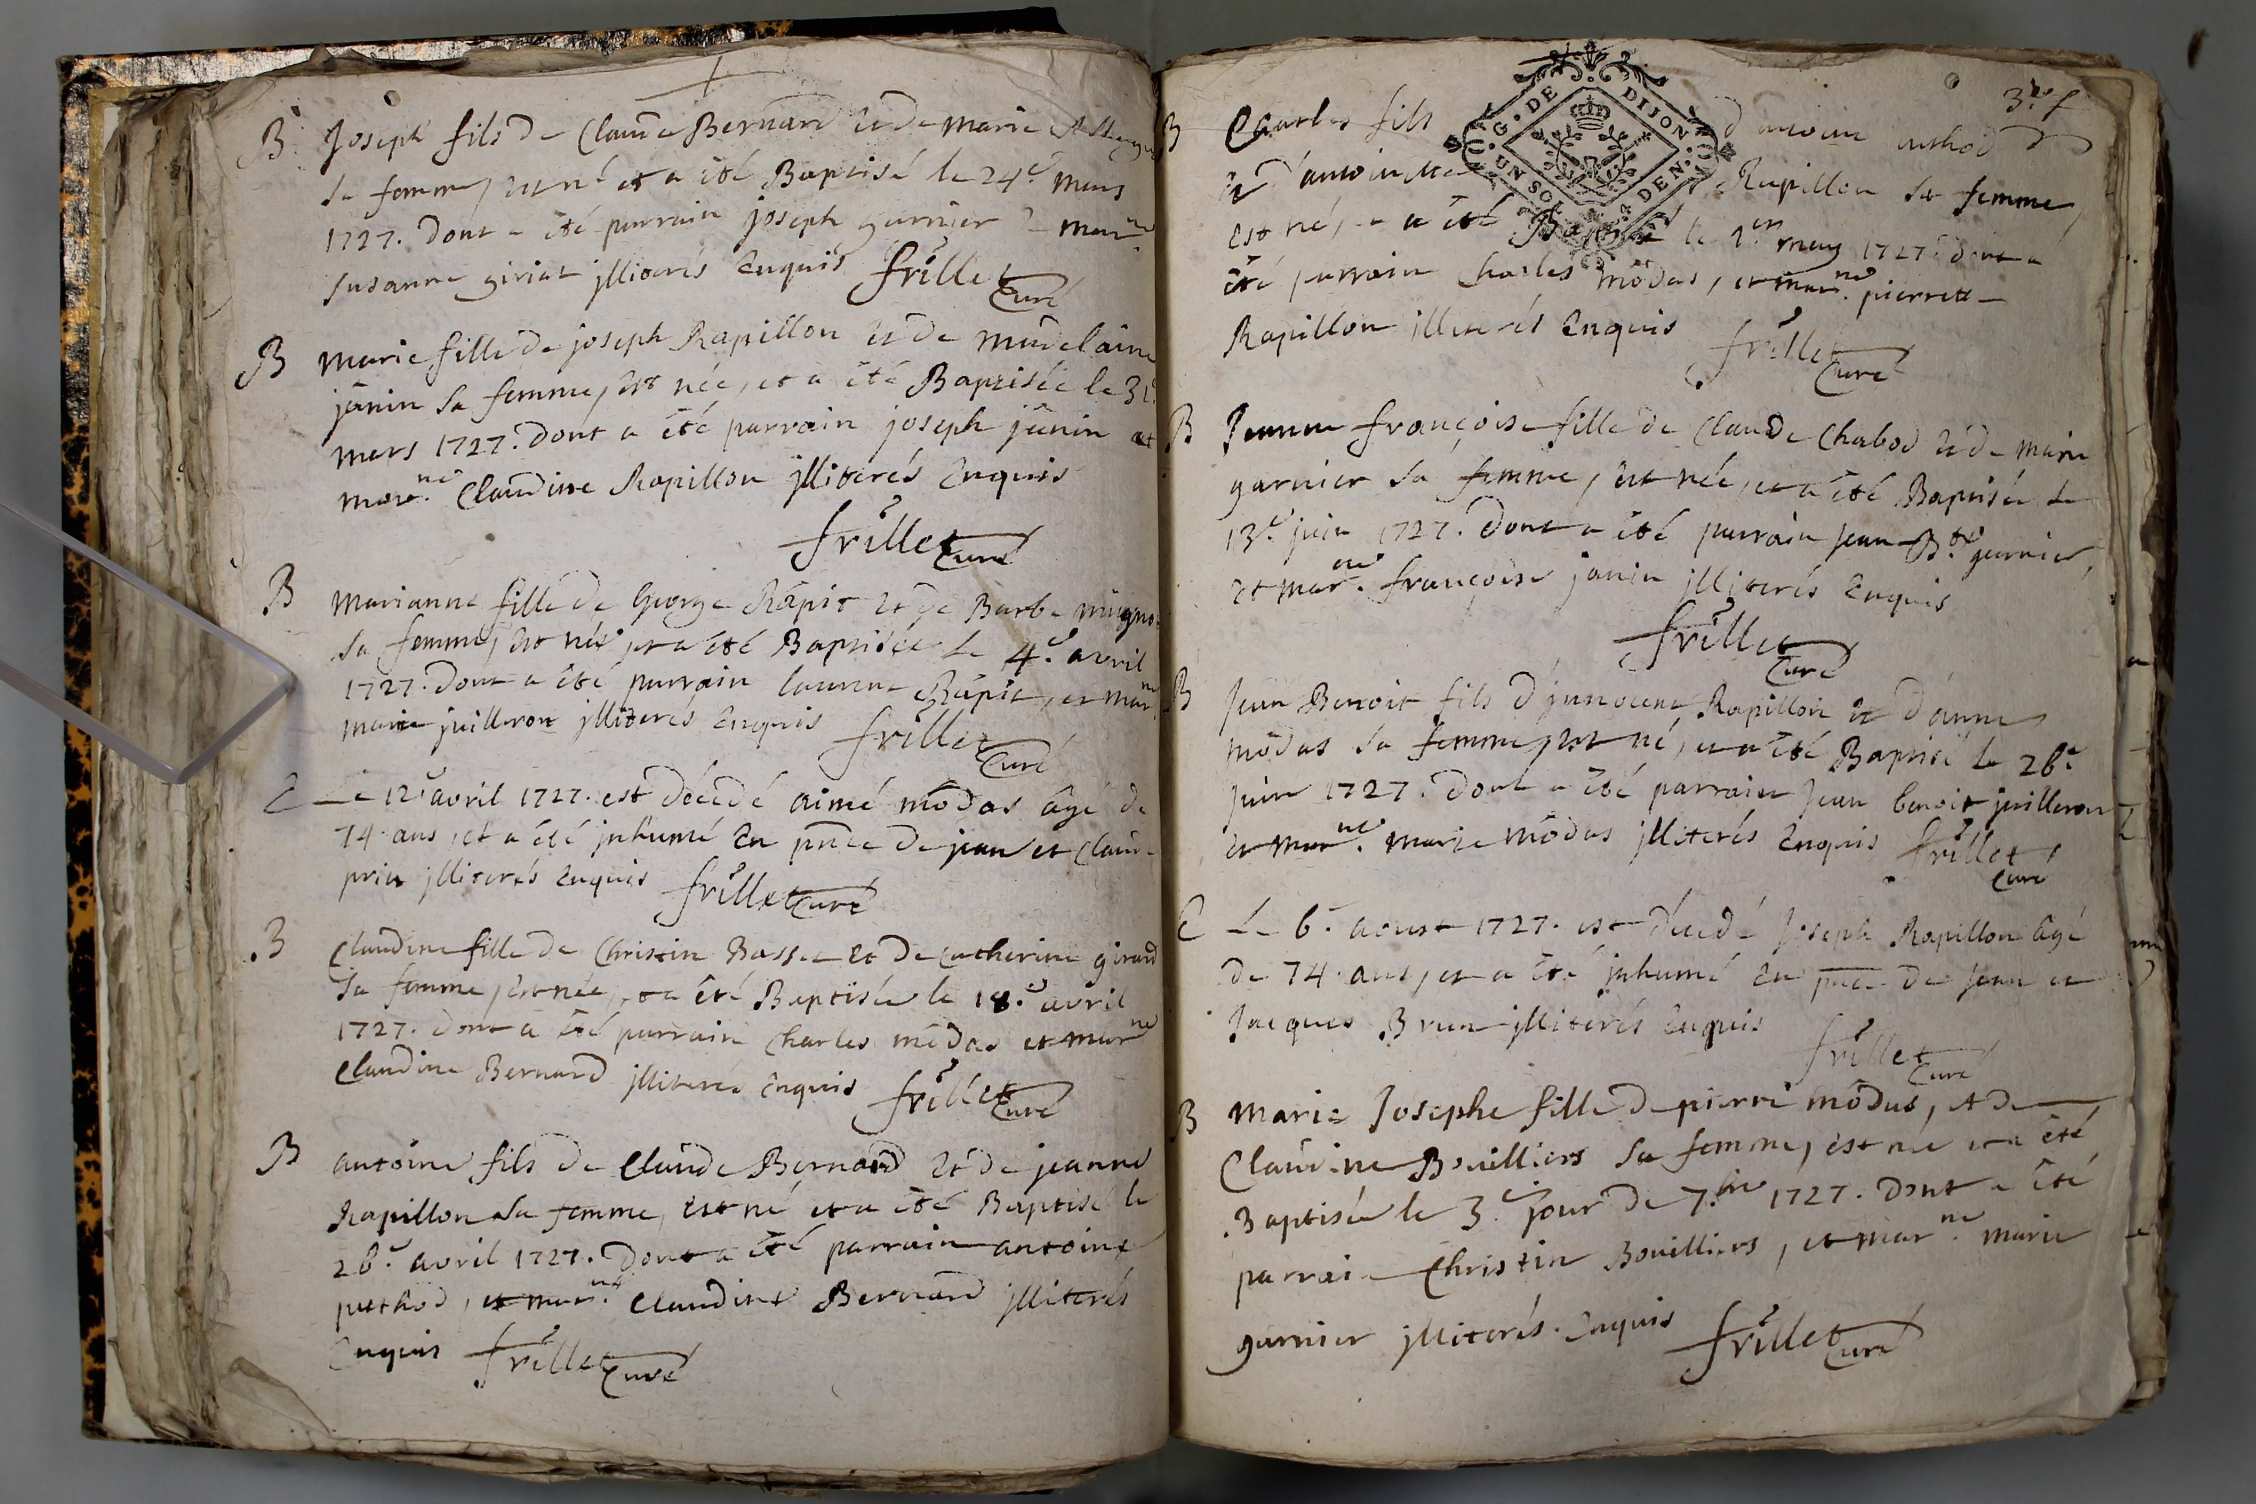 B Joseph fils de Claude Bernard et de marie
sa femme, est né et a été Baptisé le 24.e mars
1727. dont a été parrain joseph garnier & mar.ne
susanne giriat jlliterés Enquis frillet
Curé
B marie fille de joseph Rapillon et de madelaine
janin sa femme, est née, et a été Baptisée le 31.e
mars 1727. dont a été parrain joseph janin et
mar.ne Claudine Rapillon jlliterés Enquis
frillet
Curé
B marianne fille de George Rapit et de Barbe
sa femme, est née, et a été Baptisée le 4.e avril
1727. dont a été parrain laurent Rapit, et mar.ne
marie juilleron jlliterés Enquis frillet
Curé
E Le 12.e avril 1727. est décedé aimé môdas âgé de
74. ans, et a été jnhumé En pnce de jean et Claude
prin jlliterés Enquis frillet
Curé
B Claudine fille de Christin Basset et de Catherine girard
sa femme, est née, et a été Baptisée le 18.e avril
1727. dont a été parrain Charles môdas et mar.ne
Claudine Bernard jlliterés Enquis frillet
Curé
B antoine fils de Claude Bernard et de jeanne
Rapillon sa femme, est né et a été Baptisé le
26.e avril 1727. dont a été parrain antoine
puthod, et mar.ne Claudine Bernard jlliterés
Enquis frillet
Curé
G. DE DIJON
UN SOL DEN.
B Charles fils d'antoine puthod
et d'antoinette Rapillon sa femme,
est né, et a été Baptisé le may 1727. dont a
été parrain Charles môdas, et mar.ne pierrette
Rapillon jlliterés Enquis frillet
Curé
B Jeanne françoise fille de Claude Chabod et de marie
garnier sa femme, est née, et a été Baptisée le
13.e juin 1727. dont a été parrain Jean B.te garnier,
et mar.ne françoise janin jlliterés Enquis
frillet
Curé
B Jean Benoit fils d'jnnocent Rapillon et d'anne
môdas sa femme, est né, et a été Baptisé le 26.e
Juin 1727. dont a été parrain Jean benoit juilleron
et mar.ne marie môdas jlliterés Enquis frillet
Curé
E Le 6.e aoust 1727. est décedé Joseph Rapillon âgé
de 74. ans, et a été jnhumé En pnce de Jean et
Jacques Brun jlliterés Enquis frillet
Curé
B marie Josephe fille de pierre môdas, et de
Claudine Bouilliers sa femme, est née et a été
Baptisée le 3.e jour de 7.bre 1727. dont a été
parrain Christin Bouilliers, et mar.ne marie
garnier jlliterés. Enquis frillet
Curé